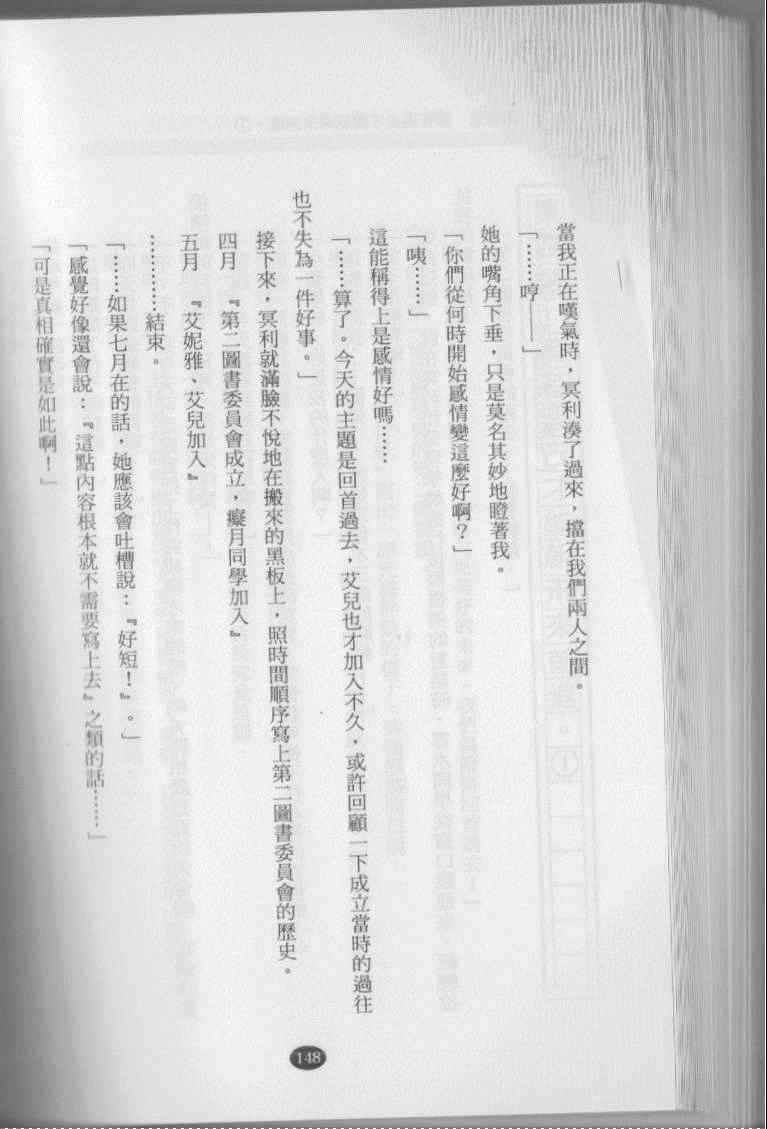 當我正在嘆氣時，冥利湊了過來，擋在我們兩人之間。
「……哼——」
她的嘴角下垂，只是莫名其妙地瞪著我。
「你們從何時開始感情變這麼好啊？」
「咦……」
這能稱得上是感情好嗎……
「……算了。今天的主題是回首過去，艾兒也才加入不久，或許回顧一下成立當時的過往
也不失為一件好事。」
接下來，冥利就滿臉不悅地在搬來的黑板上，照時間順序寫上第二圖書委員會的歷史。
四月　『第二圖書委員會成立，癡月同學加入』
五月　『艾妮雅、艾兒加入』
…………結束。
「……如果七月在的話，她應該會吐槽說：『好短！』。」
「感覺好像還會說：『這點內容根本就不需要寫上去』之類的話……」
「可是真相確實是如此啊！」
148